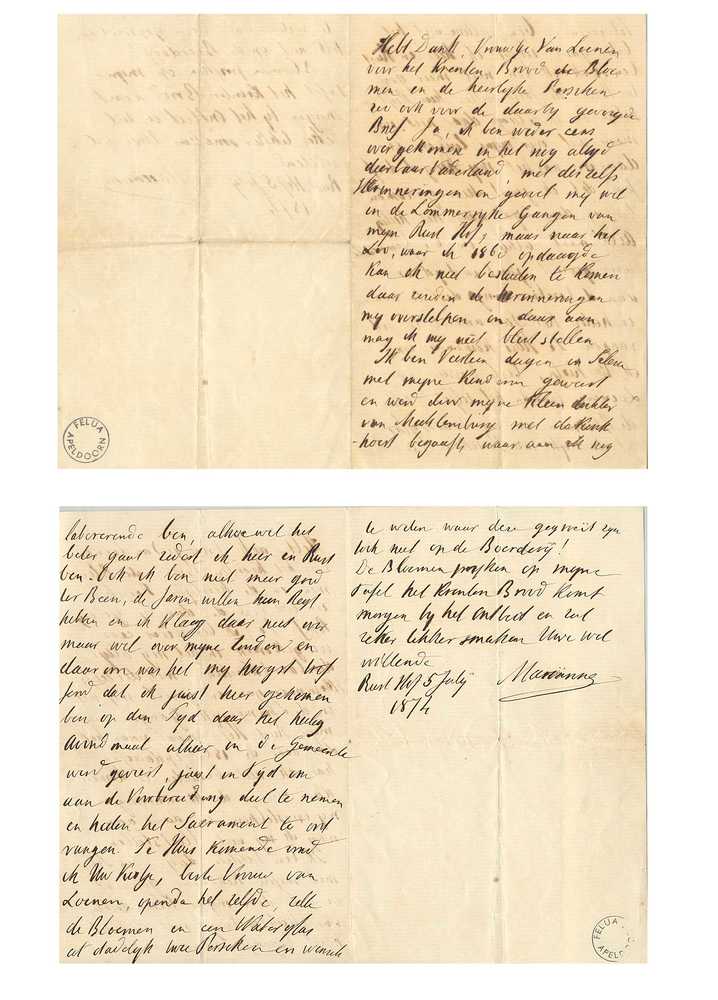 Hebt Dank, Vrouwtje Van Loenen
voor het Krenten Brood de Bloe
men en de heerlijke Persiken
zoo ook voor de daarby gevoegde
Brief. Ja, ik ben weder eens
overgekomen in het nog altyd
dierbaar Vaderland, met deszelfs
Herinneringen en gevoel my wel
in de Lommerryke Gangen van
mijn Rust Hof, maar naar het
Loo, waar ik 1860 opdaagde
kan ik niet besluiten te komen
daar zouden de herinneringen
my overstelpen en daar aan
mag ik my niet bloot stellen
Ik ben Veertien dagen in
met myne Kinderen geweest
en werd door myne Klein dochter
van Mecklenburg met de Kink
hoest begaafd, waar aan ik nog
FELUA
APELDOORN
laborerende ben, alhoewel het
beter gaat zedert ik hier en Rust
ben. Ook ik ben niet meer goed
ter Been, de Jaren willen hun Regt
hebben en ik klaag daar niet over
maar wel over myne zonden en
daarom was het my hoogst tref
fend dat ik juist hier gekomen
ben op den Tyd daar het heilig
Avondmaal alhier in de Gemeente
werd gevierd, juist in Tyd om
aan de Voorbereiding deel te nemen
en heden het Sacrament te ont
vangen. Te Huis komende vond
ik Uw Kistje, beste Vrouw van
Loenen, openda het zelfde, zette
de Bloemen in een Waterglas
at dadelyk twee Persiken en wensch
te weten waar deze gegroeid zyn
toch niet op de Boerdery!
De Bloemen pryken op myne
Tafel het Krenten Brood komt
morgen by het ontbiet en zal
zeker lekker smaken Uwe wel
willende
Rust Hof 5 July Marianne
1874
FELUA
APELD